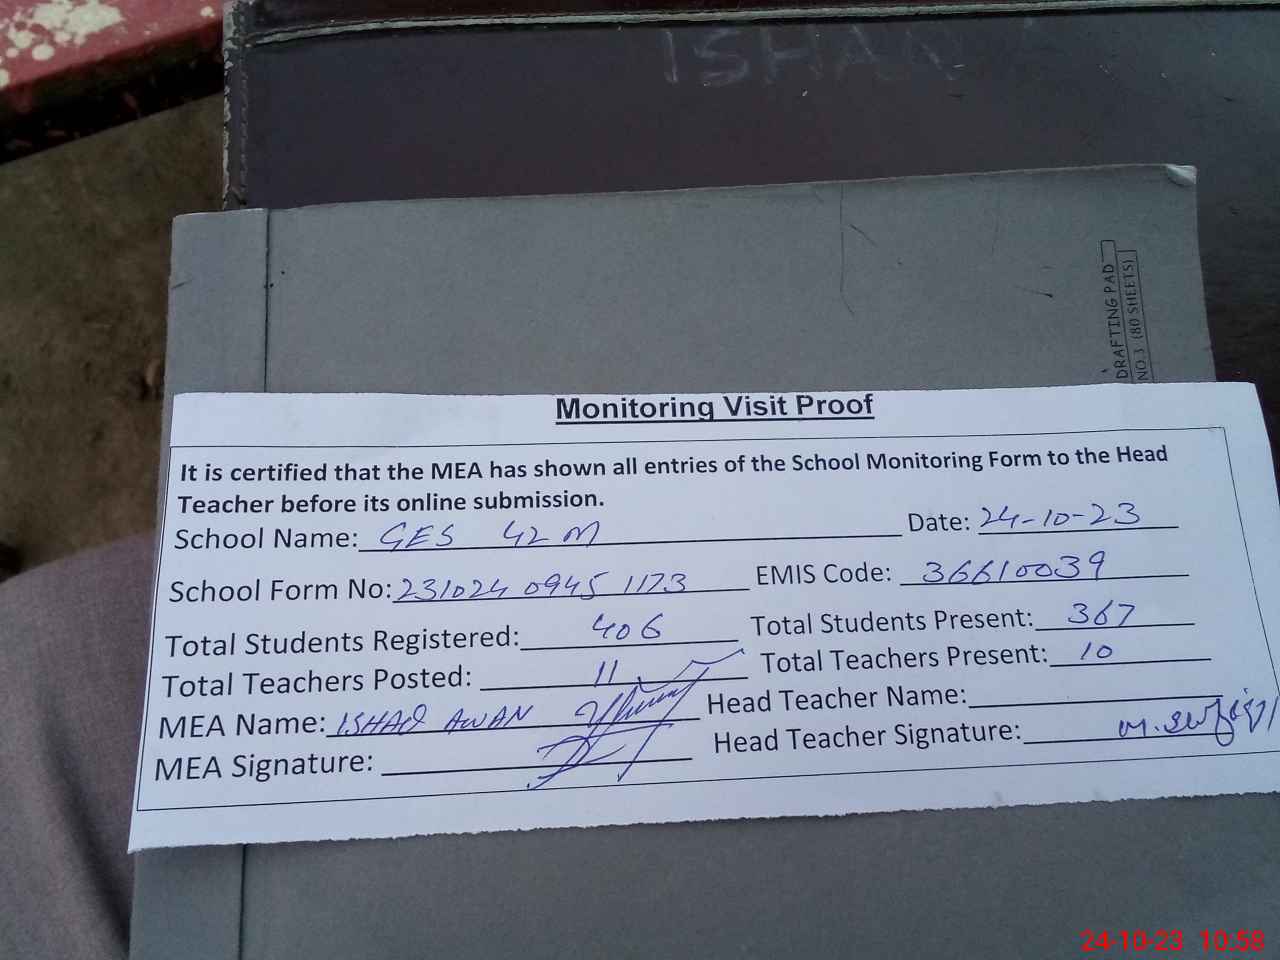 ISHAQ
DRAFTING PAD
NO.3 (80 SHEETS)
Monitoring Visit Proof
It is certified that the MEA has shown all entries of the School Monitoring Form to the Head
Teacher before its online submission.
School Name: GES 42 M Date: 24-10-23
School Form No: 231024 0945 1173 EMIS Code: 36610039
Total Students Registered: 406 Total Students Present: 367
Total Teachers Posted: 11 Total Teachers Present: 10
MEA Name: ISHAQ AWAN Head Teacher Name:
MEA Signature: Head Teacher Signature:
24-10-23 10:58